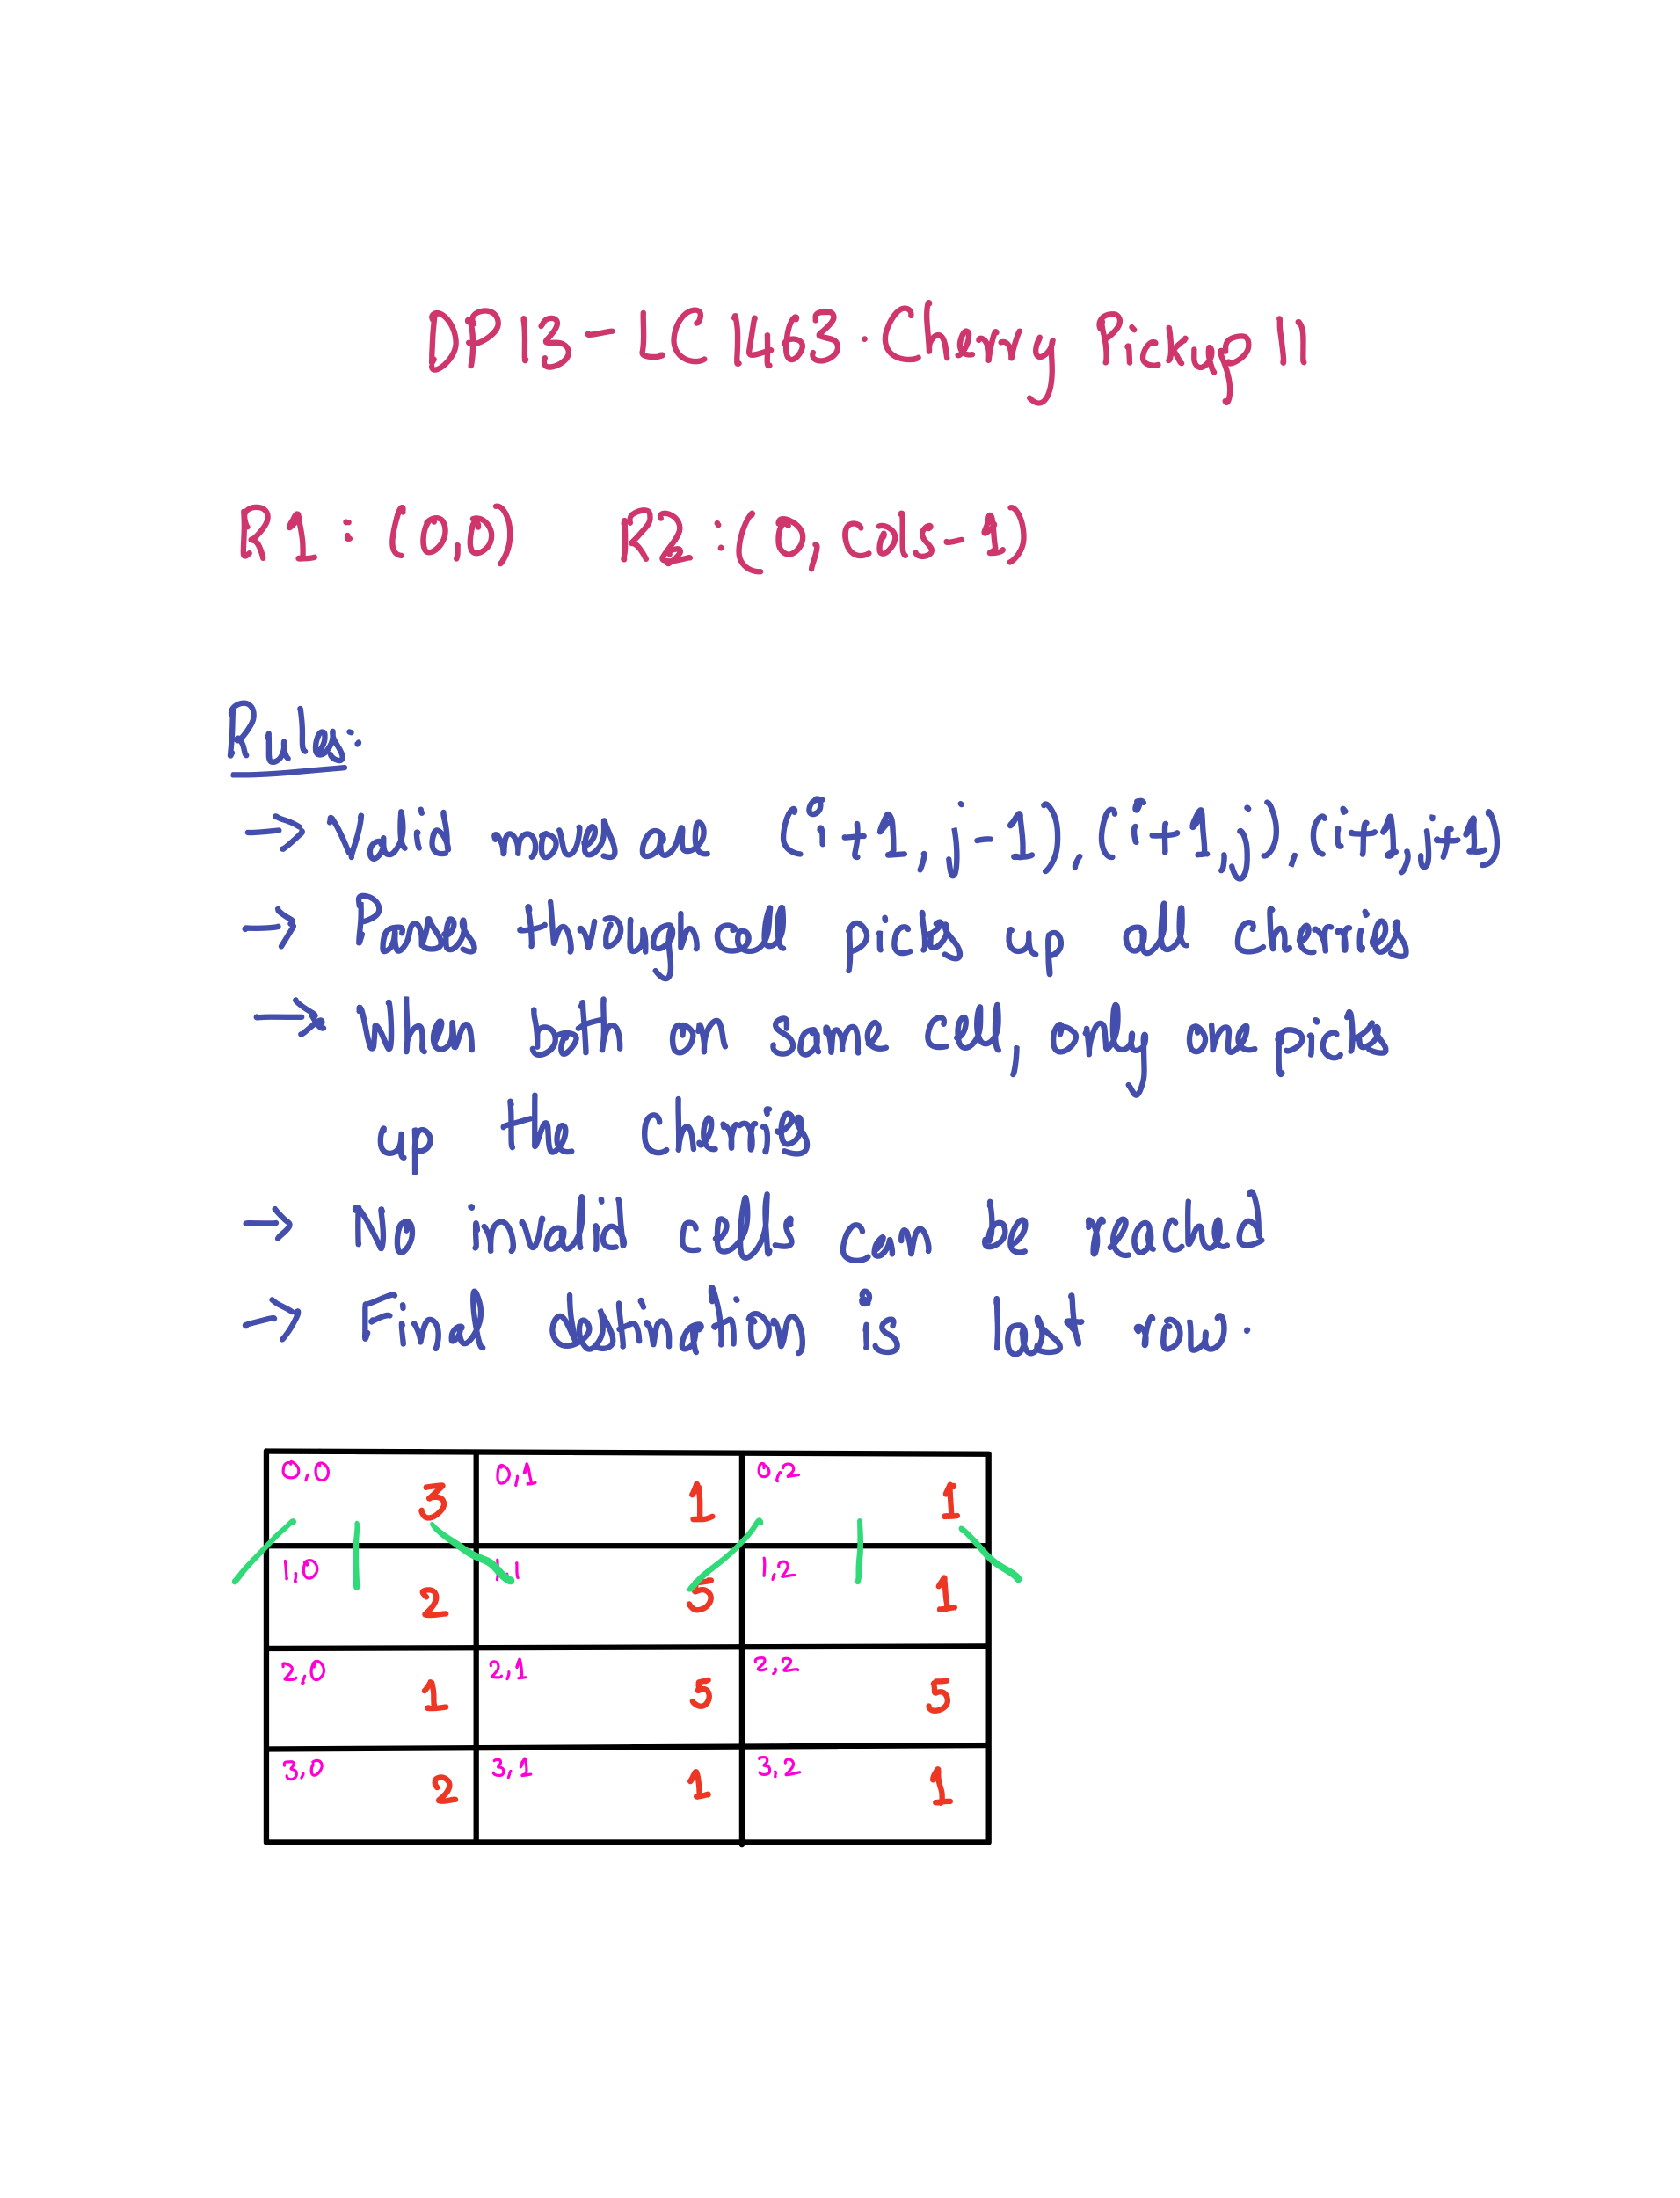 DP13-LC 1463. Cherry Pickup II
R1 : (0,0) R2 : (0, cols-1)
Rules:
→ Valid moves are (i+1, j-1), (i+1,j), (i+1,j+1)
→ Passes through cell picks up all cherries
→ When both on same cell, only one picks
up the cherries
→ No invalid cells can be reached
→ Final destination is last row.
0,0 3 0,1 1 0,2 1
1,0 2 1,1 5 1,2 1
2,0 1 2,1 5 2,2 5
3,0 2 3,1 1 3,2 1